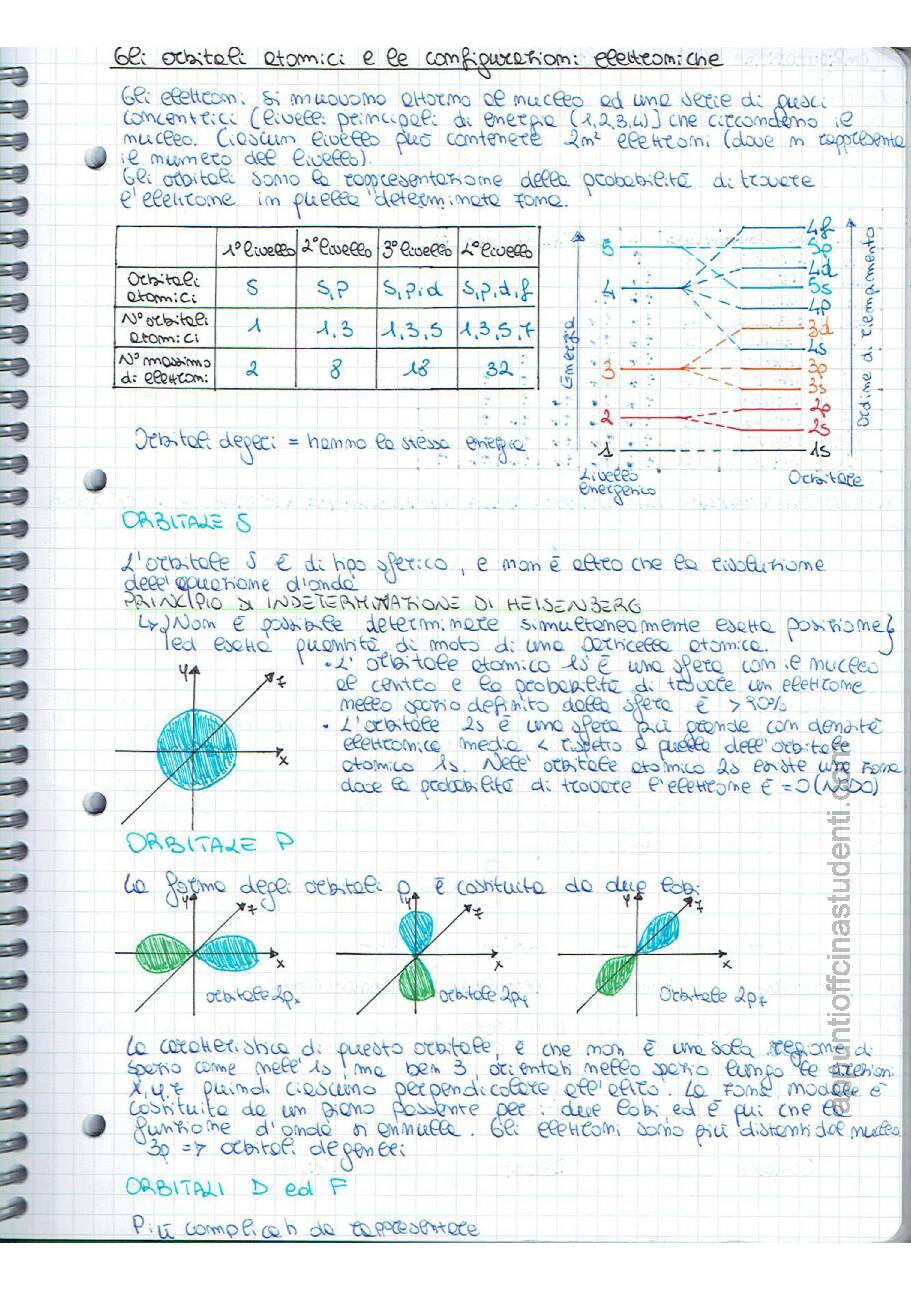 Gli orbitali atomici e le configurazioni elettroniche
Gli elettroni si muovono attorno al nucleo ad una serie di gusci
concentrici (livelli principali di energia (1,2,3,4)) che circondano il
nucleo. Ciascun livello può contenere 2n² elettroni (dove n rappresenta
il numero del livello).
Gli orbitali sono la rappresentazione della probabilità di trovare
l'elettrone in quella determinata zona.
1° livello 2° livello 3° livello 4° livello
Orbitali atomici S S,p S,p,d S,p,d,f
N° orbitali atomici 1 1,3 1,3,5 1,3,5,7
N° massimo di elettroni 2 8 18 32
Energia
5
4
3
2
1
Livello
energetico
4f
5p
4d
5s
4p
3d
4s
3p
3s
2p
2s
1s
Orbitale
Ordine di riempimento
Orbitali degeri = hanno la stessa energia
ORBITALE S
L'orbitale S è di tipo sferico, e non è altro che la risoluzione
dell'equazione d'onda
PRINCIPIO DI INDETERMINAZIONE DI HEISENBERG
↳ Non è possibile determinare simultaneamente esatta posizione
ed esatta quantità di moto di una particella atomica.
• L'orbitale atomico 1s è una sfera con il nucleo
al centro e la probabilità di trovare un elettrone
nello spazio definito dalla sfera è >90%
• L'orbitale 2s è una sfera più grande con densità
elettronica media < rispetto a quella dell'orbitale
atomico 1s. Nell'orbitale atomico 2s esiste una zona
dove la probabilità di trovare l'elettrone è =0 (NODO)
y
z
x
ORBITALE P
La forma degli orbitali p è costituita da due lobi
y
z
x
orbitale 2px
y
z
x
orbitale 2py
y
z
x
Orbitale 2pz
La caratteristica di questo orbitale, è che non è una sola regione di
spazio come nell'1s, ma ben 3, orientati nello spazio lungo le direzioni
x,y,z quindi ciascuno perpendicolare all'altro. La zona nodale è
costituita da un piano passante per i due lobi, ed è qui che la
funzione d'onda si annulla. Gli elettroni sono più distanti dal nucleo
3p => orbitali degeneri
ORBITALI D ed F
Più complicati da rappresentare
appuntioffcinastudenti.com